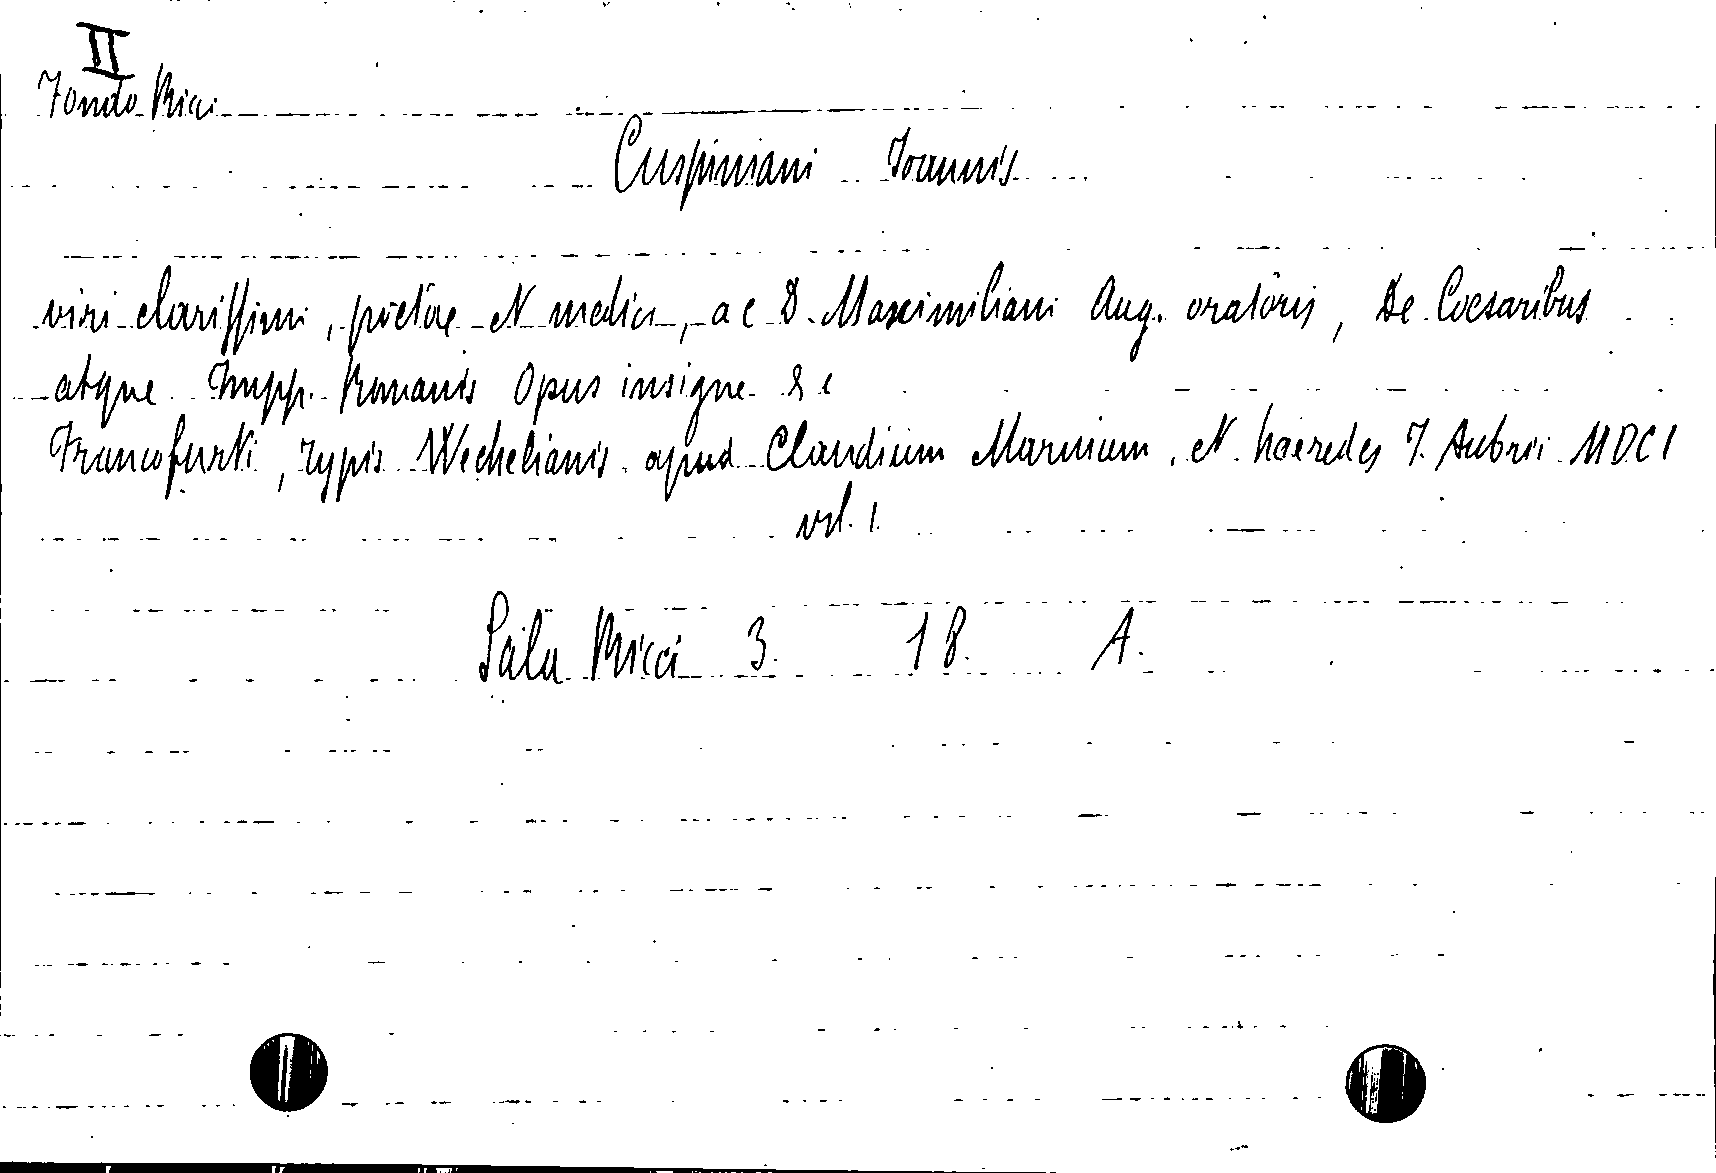 II
Fondo Ricci
Cuspiniani Ioannis
viri clarissimi, poetae et medici, ac D. Maximiliani Aug. oratoris, De Caesaribus
atque Impp. Romanis Opus insigne &c
Francofurti, Typis Wechelianis apud Claudium Marnium, et haeredes J. Aubrii MDCI
vol. 1.
Sala Ricci 3. 18. A.